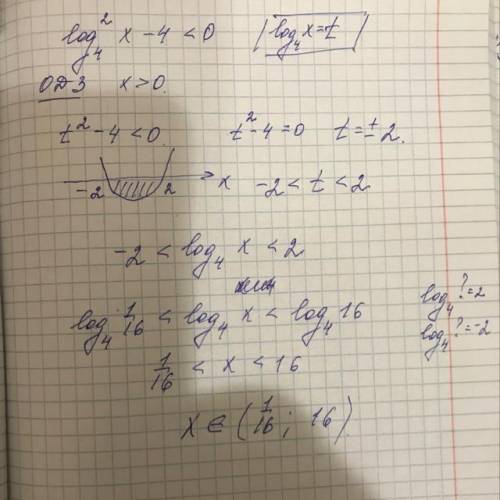 log₄² x - 4 < 0 | log₄ x = t
ОДЗ x > 0
t² - 4 < 0 t² - 4 = 0 t = ± 2.
-2 2 x -2 < t < 2
-2 < log₄ x < 2
log₄ 1/16 < log₄ x < log₄ 16
log₄ ? = 2
log₄ ? = -2
1/16 < x < 16
x ∈ (1/16; 16)